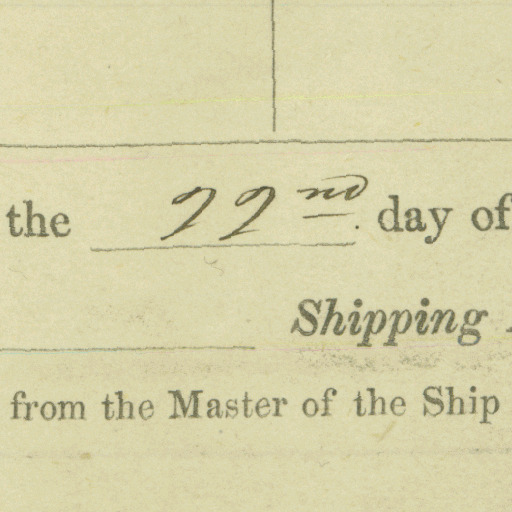 the 22nd day of
Shipping
from the Master of the Ship